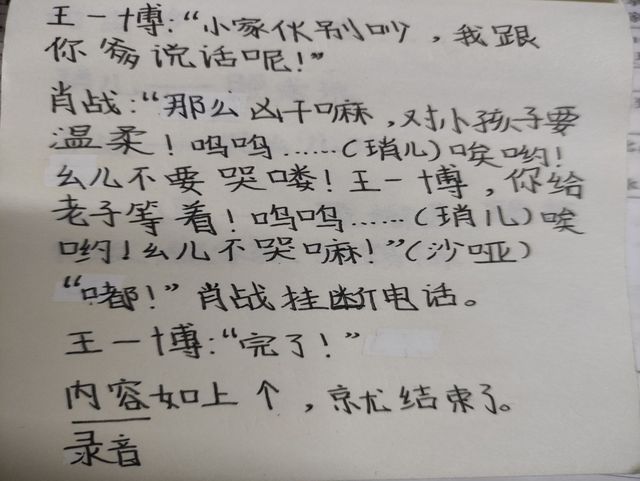 王一博:“小家伙别吵，我跟
你爹说话呢!”
肖战:“那么凶干嘛,对小孩子要
温柔!呜呜……(琑儿)唉哟!
幺儿不要哭喽!王一博，你给
老子等着!呜呜……(琑儿)唉
哟!幺儿不哭嘛!”(沙哑)
“嘟!”肖战挂断电话。
王一博:“完了!”
内容如上个，就结束了。
录音